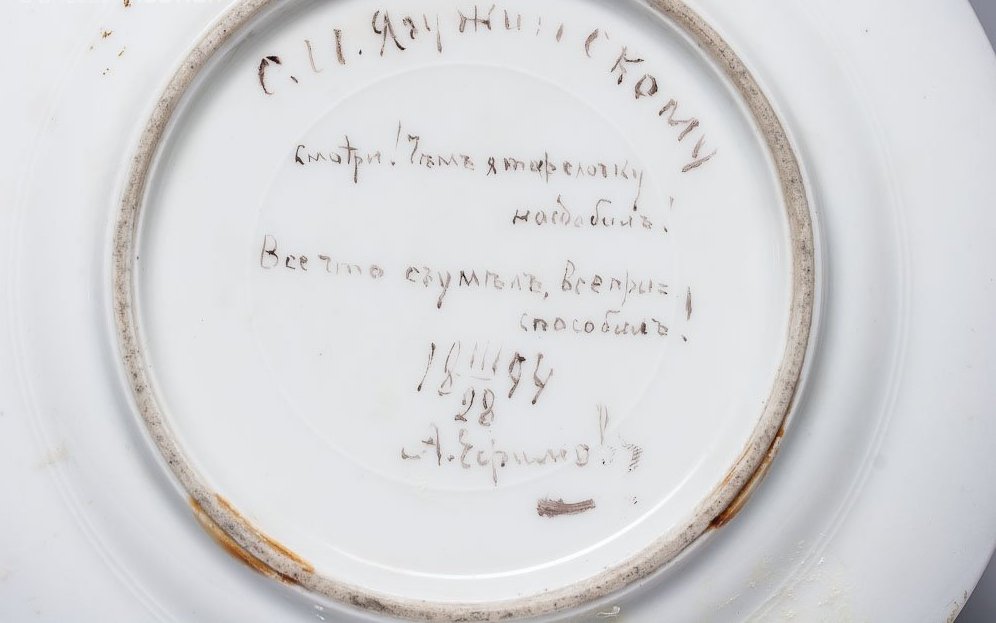 С. И. Ягужинскому
смотри! Чѣмъ я тарелочку
насдобилъ!
Все что съумѣлъ, все при=
способилъ!
18 III 94
28
А. Ефимовъ